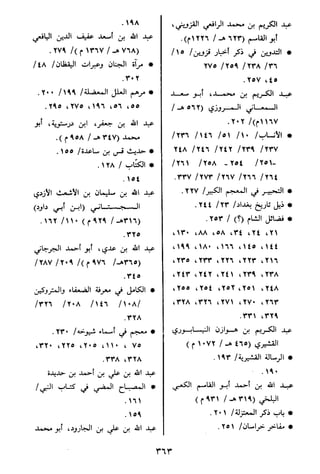 عبد الكريم بن محمد الرافعي القزويني،
أبو القاسم (٦٢٣ هـ / ١٢٢٦م).
* التدوين في ذكر أخبار قزوين/ ١٥
٣٦/ ٢٣٨/ ٢٥٩/ ٧٥
٤٥، ٢٥٧.
عبد الكريم بن محمد، أبو سعد
السمعاني المروزي (٥٦٢ هـ /
١١٦٧م)/ ٢٠٢.
* الأنساب/ ١٠/ ٥١/ ١٤٦/ ٢٣٦/
٢٣٧/ ٢٣٩/ ٢٤٢/ ٢٤٧/ ٢٤٨
٢٥١- ٢٥٤ / ٢٥٨/ ٢٦١/
٢٦٤/ ٢٦٦/ ٢٦٧/ ٢٧٣/ ٣٣٧.
* التحبير في المعجم الكبير/ ٢٢٧.
* ذيل تاريخ بغداد/ ٢٣/ ٢٤٤.
* فضائل الشام (؟)/ ٢٥٣.
٢١، ٢٤، ٣٤، ٥٨، ٨٨، ١٣٠،
١٤٤، ١٤٥، ١٦٦، ١٨٠، ١٩٩،
٢١٦، ٢٢٣، ٢٢٦، ٢٣٣، ٢٣٥،
٢٣٨، ٢٣٩، ٢٤١، ٢٤٢، ٢٤٣،
٢٤٨، ٢٥١، ٢٥٢، ٢٥٤، ٢٥٥،
٢٦٣، ٢٧٠، ٢٧١، ٣٢٦، ٣٢٨،
٣٢٩، ٣٣١.
عبد الكريم بن هوازن النيسابوري
القشيري (٤٦٥ هـ / ١٠٧٢ م)
* الرسالة القشيرية/ ١٩٣.
١٩٠.
عبد الله بن أحمد أبو القاسم الكعبي
البلخي (٣١٩ هـ / ٩٣١ م)
* باب ذكر المعتزلة/ ٢٠١.
* مفاخر خراسان/ ٢٥١.
١٩٨.
عبد الله بن أسعد عفيف الدين اليافعي
(٧٦٨ هـ / ١٣٦٧ م )/ ٢٧٩.
* مرآة الجنان وعبرات اليقظان/ ٤٨/
٣٠٢.
* مرهم العلل المعضلة/ ١٩٩/ ٢٠٠.
٥٥، ٥٦، ١٩٦، ٢٧٥، ٢٩٥.
عبد الله بن جعفر، ابن درستويه، أبو
محمد (٣٤٧ هـ / ٩٥٨ م)
* حديث قس بن ساعدة/ ١٥٥.
* الكُتّاب/ ١٢٨.
١٥٤.
عبد الله بن سليمان بن الأشعث الأزدي
السجستاني (ابن أبي داود)
(٣١٦هـ/ ٩٢٩ م )/ ١١٠/ ١٦٢.
٣٢٥.
عبد الله بن عدي، أبو أحمد الجرجاني
(٣٦٥هـ/ ٩٧٦ م)/ ٢٠٩/ ٢٨٧/
٣٤٥.
* الكامل في معرفة الضعفاء والمتروكين
/١٠٨/ ١٤٦/ ٢٠٨ / ٣٢٦/
٣٢٨.
* معجم في أسماء شيوخه/ ٢٣٠.
٧٥ ، ١١٠، ٢٠٥، ٢٢٥، ٣٢٠،
٣٢٨، ٣٣٨.
عبد الله بن علي بن أحمد بن حديدة
* المصباح المضي في كتاب النبي/
١٦١.
١٥٩.
عبد الله بن علي بن الجارود، أبو محمد
٣٦٣